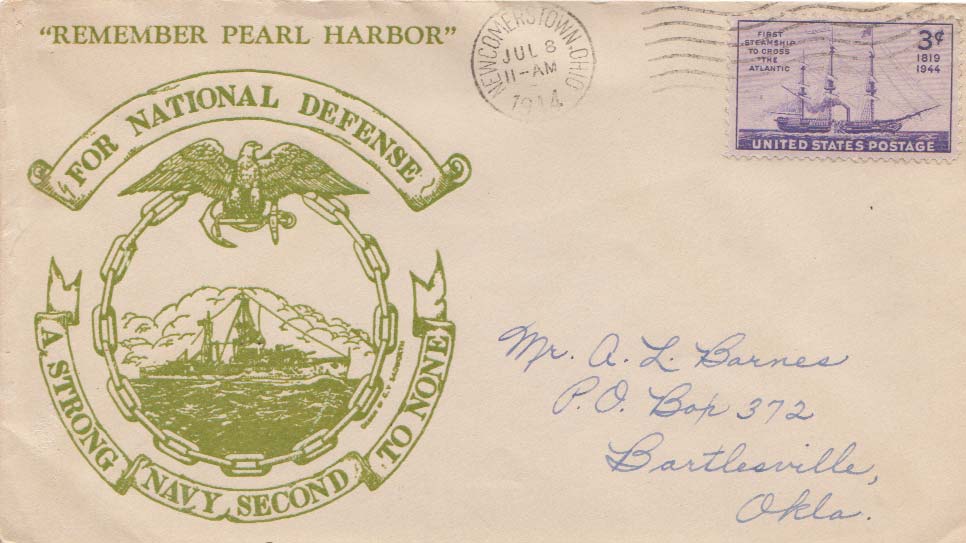 "REMEMBER PEARL HARBOR"
FOR NATIONAL DEFENSE
A STRONG NAVY SECOND TO NONE
NEWCOMERSTOWN, OHIO
JUL 8
11-AM
1944
FIRST
STEAMSHIP
TO CROSS
THE
ATLANTIC
3¢
1819
1944
UNITED STATES POSTAGE
Mr. A. L. Barnes
P.O. Box 372
Bartlesville,
Okla.